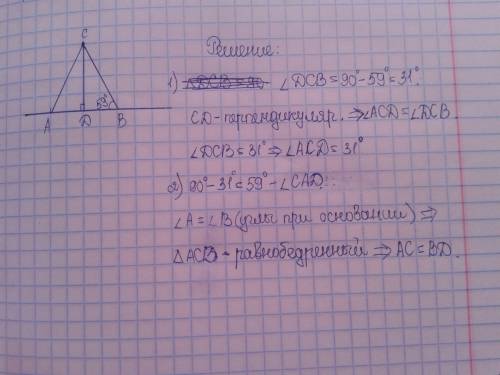 Решение:
C
59°
A D B
1) ∠DCB = 90°-59°=31°.
CD-перпендикуляр. ⇒∠ACD=∠DCB.
∠DCB=31°⇒∠ACD=31°
2) 90°-31°=59°-∠CAD.
∠A=∠B(углы при основании)⇒
△ACB-равнобедренный⇒AC=BD.